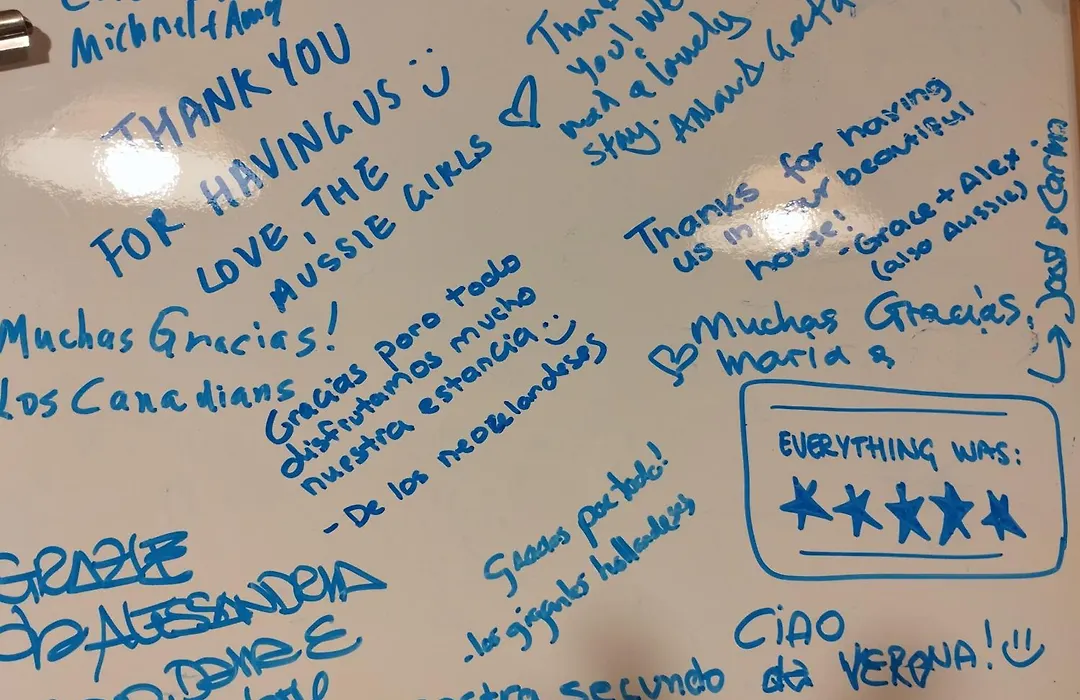 Michael + Amy
THANK YOU
FOR HAVING US :)
LOVE, THE
AUSSIE GIRLS
Thank
you! We
had a lovely
stay.
Thanks for having
us in your beautiful
house!
- Grace + Alex
(also Aussies)
Muchas Gracias!
Los Canadians
Gracias poro todo
disfrutamos mucho
nuestra estancia :)
- De los neozelandeses
Muchas Gracias,
Maria &
→ Joost & Carina
EVERYTHING WAS:
★★★★★
Gracias por todo!
- los gigantes hollandeses
GRAZIE
da ALESSANDRA
E
CiAO
da VERONA! :)
segundo